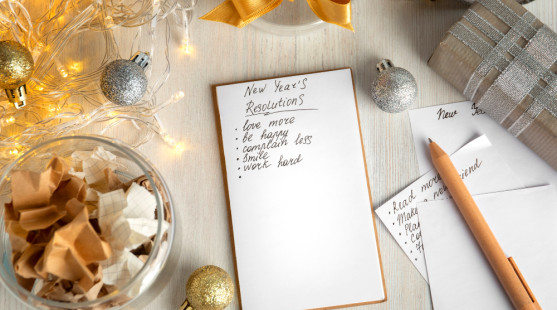 New Year's
Resolutions
• love more
• be happy
• complain less
• smile
• work hard
•
New
• Read more
• Make a new friend
• Plan